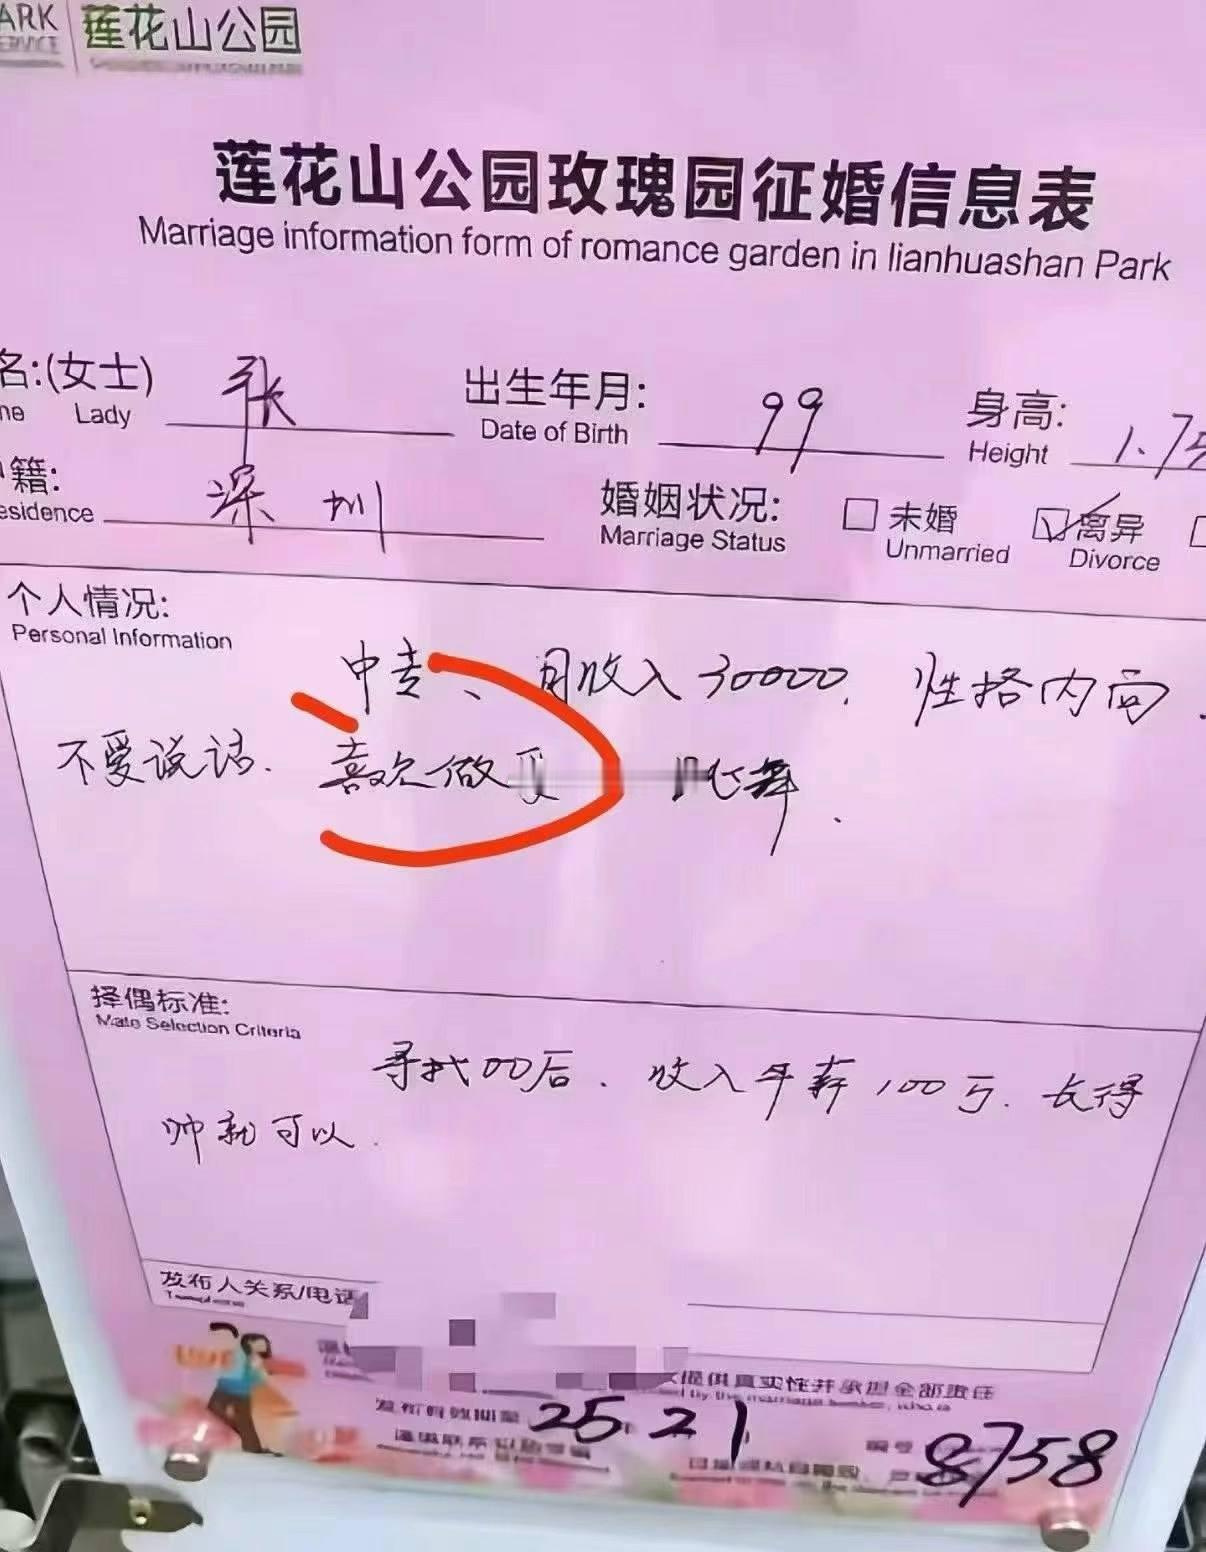 ARK 莲花山公园
莲花山公园玫瑰园征婚信息表
Marriage information form of romance garden in lianhuashan Park
名:(女士) 张 出生年月: 99 身高: 1.75
Lady Date of Birth Height
籍: 深圳 婚姻状况: 未婚 离异
esidence Marriage Status Unmarried Divorce
个人情况:
Personal Information
中专、月收入30000, 性格内向.
不爱说话. 喜欢做 舞.
择偶标准:
Mate Selection Criteria
寻找00后. 收入年薪100万. 长得
帅就可以.
发布人关系/电话
提供真实性并承担全部责任
25 21
8758